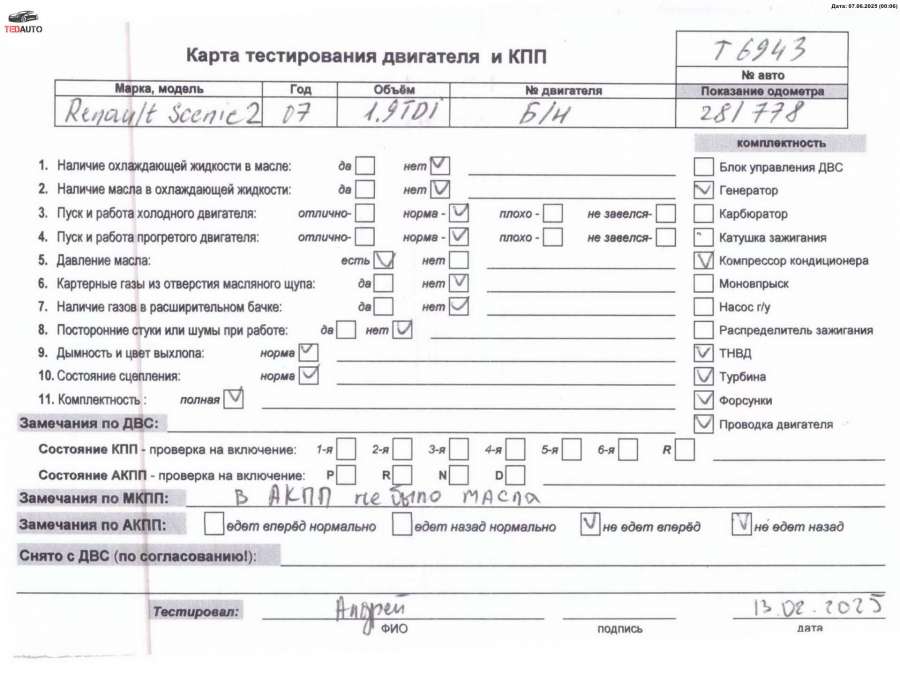 Дата: 07.06.2025 (00:06)
TEDAUTO
Карта тестирования двигателя и КПП
Т6943
№ авто
Марка, модель Год Объём № двигателя Показание одометра
Renault Scenic 2 07 1.9TDi Б/Н 281778
комплектность
1. Наличие охлаждающей жидкости в масле: да нет
Блок управления ДВС
2. Наличие масла в охлаждающей жидкости: да нет
Генератор
3. Пуск и работа холодного двигателя: отлично- норма - плохо - не завелся-
Карбюратор
4. Пуск и работа прогретого двигателя: отлично- норма - плохо - не завелся-
Катушка зажигания
5. Давление масла: есть нет
Компрессор кондиционера
6. Картерные газы из отверстия масляного щупа: да нет
Моновпрыск
7. Наличие газов в расширительном бачке: да нет
Насос г/у
8. Посторонние стуки или шумы при работе: да нет
Распределитель зажигания
9. Дымность и цвет выхлопа: норма
ТНВД
10. Состояние сцепления: норма
Турбина
11. Комплектность : полная
Форсунки
Замечания по ДВС:
Проводка двигателя
Состояние КПП - проверка на включение: 1-я 2-я 3-я 4-я 5-я 6-я R
Состояние АКПП - проверка на включение: P R N D
Замечания по МКПП: В АКПП не было масла
Замечания по АКПП: едет вперёд нормально едет назад нормально не едет вперёд не едет назад
Снято с ДВС (по согласованию!):
Тестировал: Андрей 13.02.2025
ФИО подпись дата